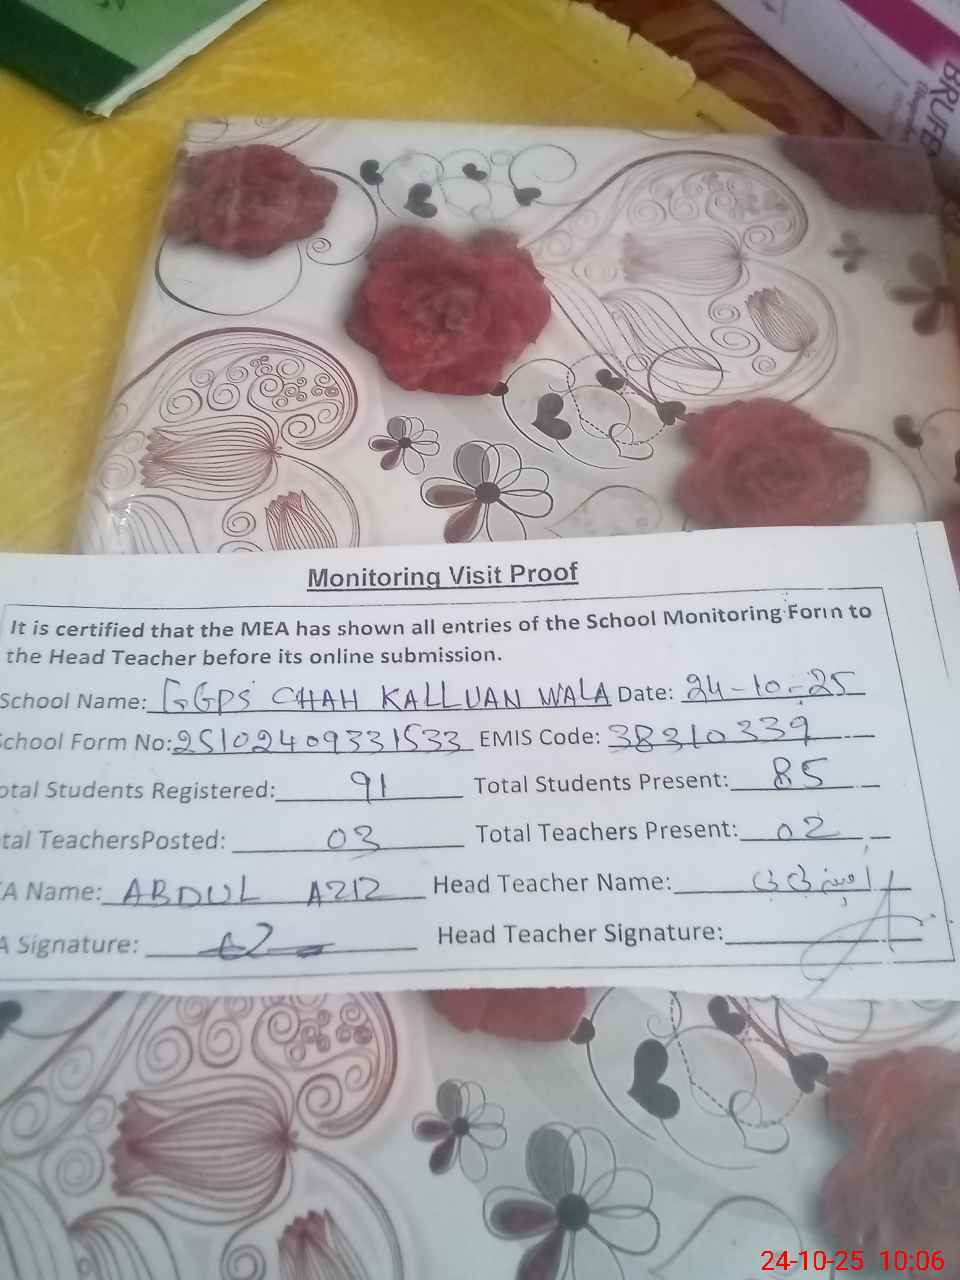 BRUFEN
Monitoring Visit Proof
It is certified that the MEA has shown all entries of the School Monitoring Form to
the Head Teacher before its online submission.
School Name: GGPS CHAH KALLUAN WALA Date: 24-10-25
School Form No: 25102409331533 EMIS Code: 38310339
otal Students Registered: 91 Total Students Present: 85
tal TeachersPosted: 03 Total Teachers Present: 02
A Name: ABDUL AZIZ Head Teacher Name:
A Signature: Head Teacher Signature:
24-10-25 10:06